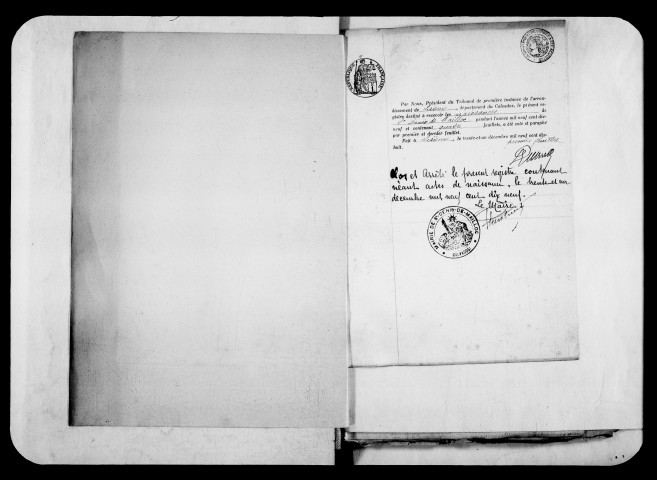 Par Nous, Président du Tribunal de première instance de l'arron-
dissement de Lisieux, département du Calvados, le présent re-
gistre destiné à recevoir les naissances de
St Denis de Mailloc pendant l'année mil neuf cent dix-
neuf et contenant feuillets, a été coté et paraphé
par premier et dernier feuillet.
Fait à Lisieux, le trente-et-un décembre mil neuf cent dix-
huit.
Clos et arrêté le présent registre contenant
néant actes de naissances, le trente et un
décembre mil neuf cent dix neuf.
Le Maire
MAIRIE DE ST DENIS-DE-MAILLOC